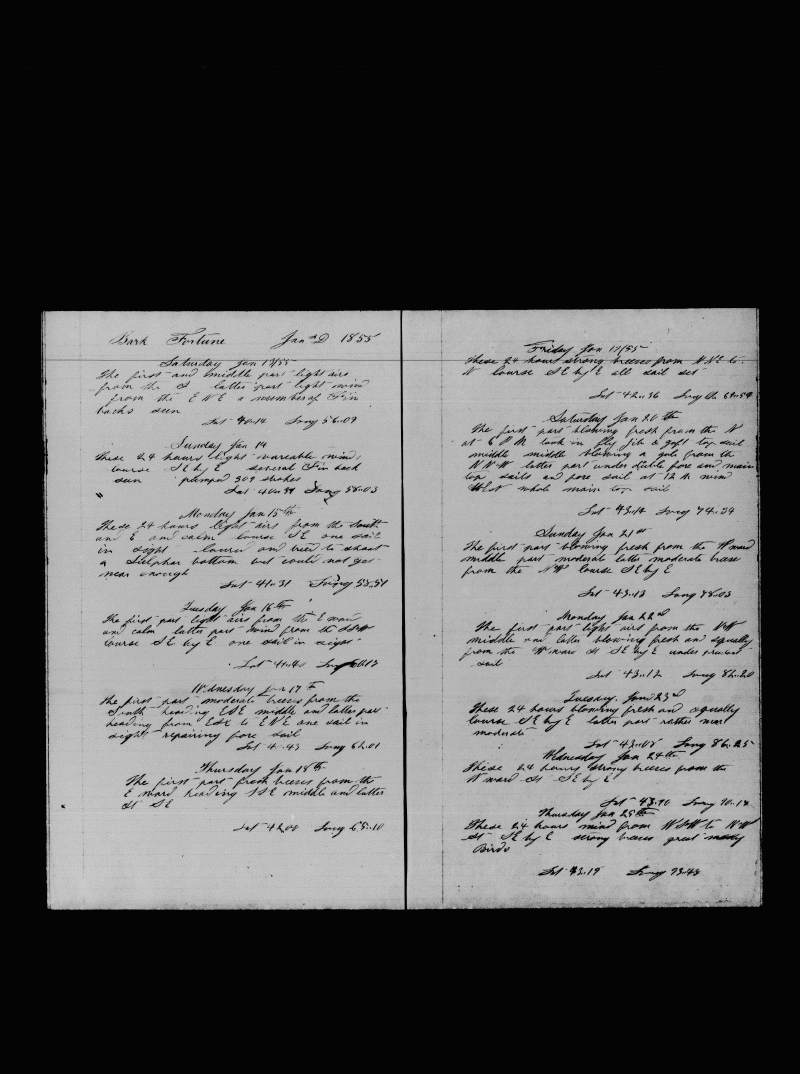 Bark Fortune Jan D 1855
Saturday Jan 13/55
The first and middle part light airs
from the S latter part light wind
from the E N E a number of Fin
backs seen
Lat 40.14 Long 56.09
Sunday Jan 14
These 24 hours light vareable wind
course SE by E several Fin back
seen plumped 309 strokes
Lat 40.49 Long 58.03
Monday Jan 15th
These 24 hours light airs from the South
and E and calm course SE one sail
in sight lowered and tried to shoot
a Sulpher bottom but could not get
near enough
Lat 41.31 Long 58.51
Tuesday Jan 16th
The first part light airs from the E ward
and calm latter part wind from the SSW
course SE by E one sail in sight
Lat 41
Wednesday Jan 17th
The first part moderate breeses from the
South heading ENE middle and latter part
heading from to ENE one sail in
sight repairing fore sail
Lat 43 Long 62.01
Thursday Jan 18th
The first part fresh breeses from the
E ward heading SSE middle and latter
St SE
Lat 42.00 Long 65.10
Friday Jan 19/55
These 24 hours strong breeses from NNE to
N Course SE by E all sail set
Lat 42.36 Long 69.59
Saturday Jan 20th
The first part blowing fresh from the N
at 6 PM took in fly jib & gaft top sail
middle middle blowing a gale from the
NNW latter part under duble fore and main
top sails and fore sail at 12 M wind
whole main top sail
Lat 43.14 Long 74.34
Sunday Jan 21st
The first part blowing fresh from the W ward
middle part moderate latter moderate breese
from the NW Course SE by E
Lat 43.13 Long 78.03
Monday Jan 22nd
The first part light airs from the NW
middle and latter blowing fresh and squally
from the W ward St SE by E under
sail
Lat 43.12 Long 82.20
Tuesday Jan 23rd
These 24 hours blowing fresh and squally
Course SE by E latter part rather more
moderate
Lat 43.08 Long 86.25
Wednesday Jan 24th
These 24 hours strong breeses from the
W ward St SE by E
Lat 43.10 Long 90.18
Thursday Jan 25th
These 24 hours wind from WSW to NW
St SE by E strong breeses great many
Birds
Lat 43.19 Long 93.43